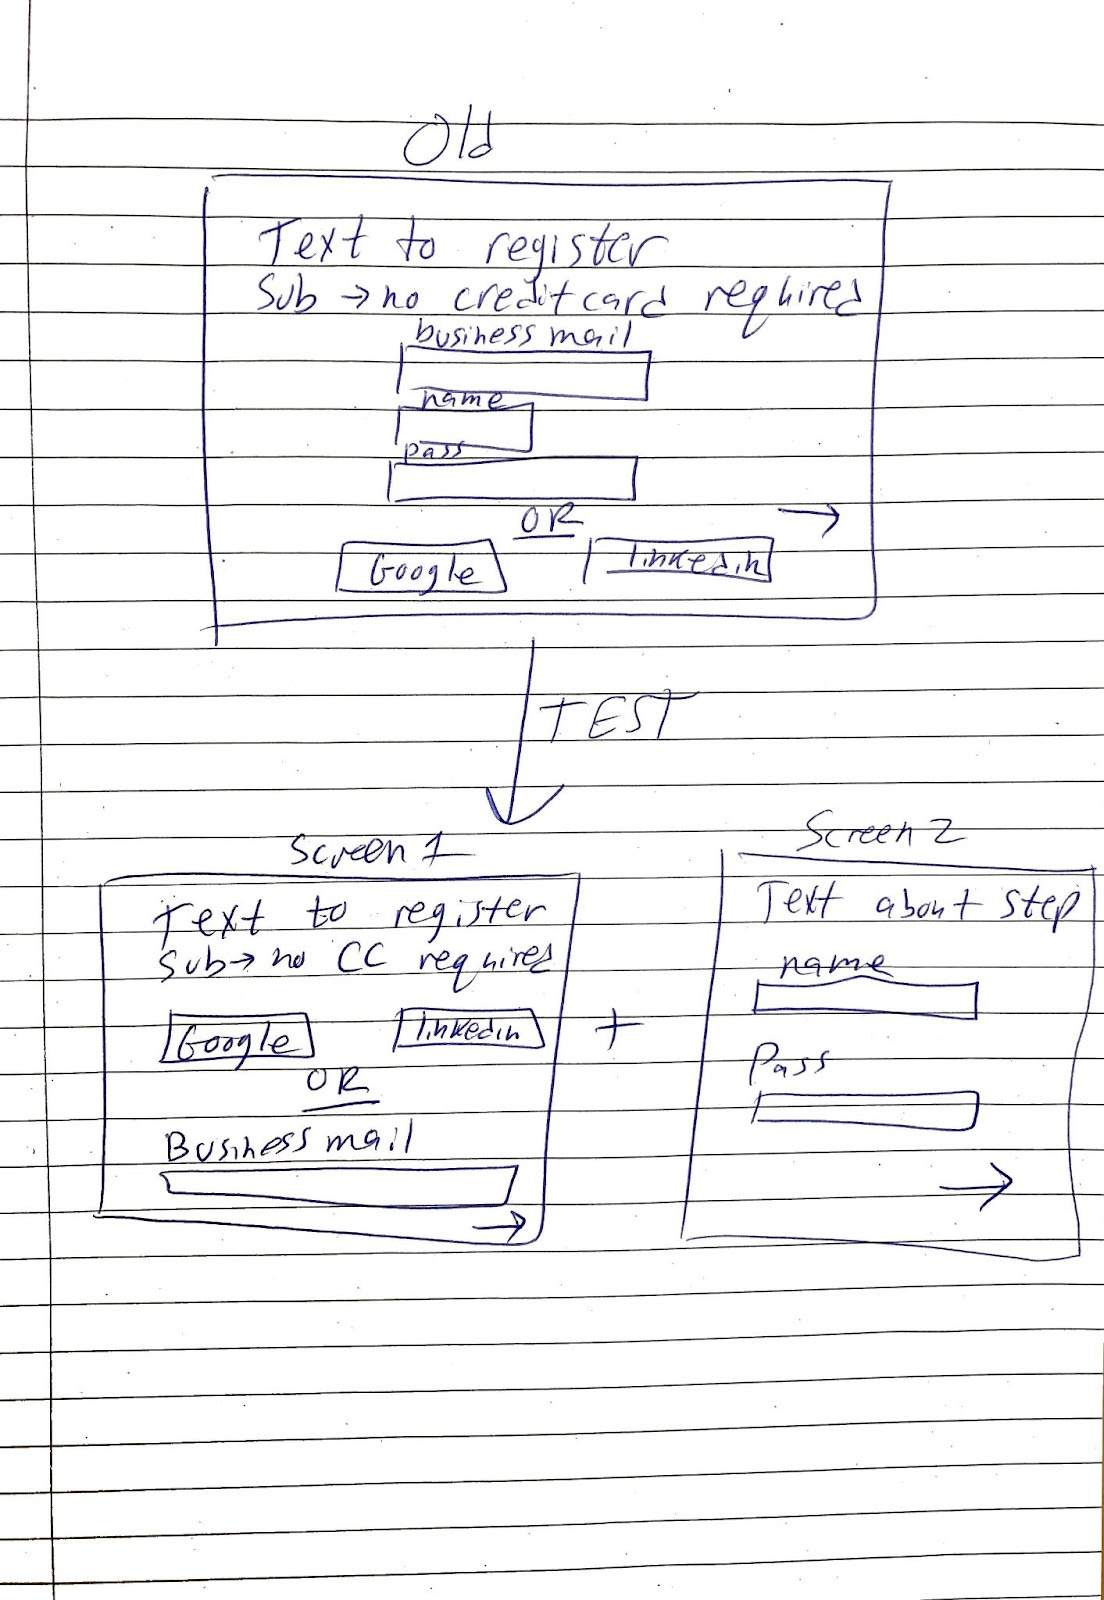 Old
Text to register
Sub → no credit card required
business mail
name
pass
OR →
Google linkedin
TEST
Screen 1
Text to register
Sub → no CC required
Google linkedin
OR
Business mail
→
+
Screen 2
Text about step
name
Pass
→